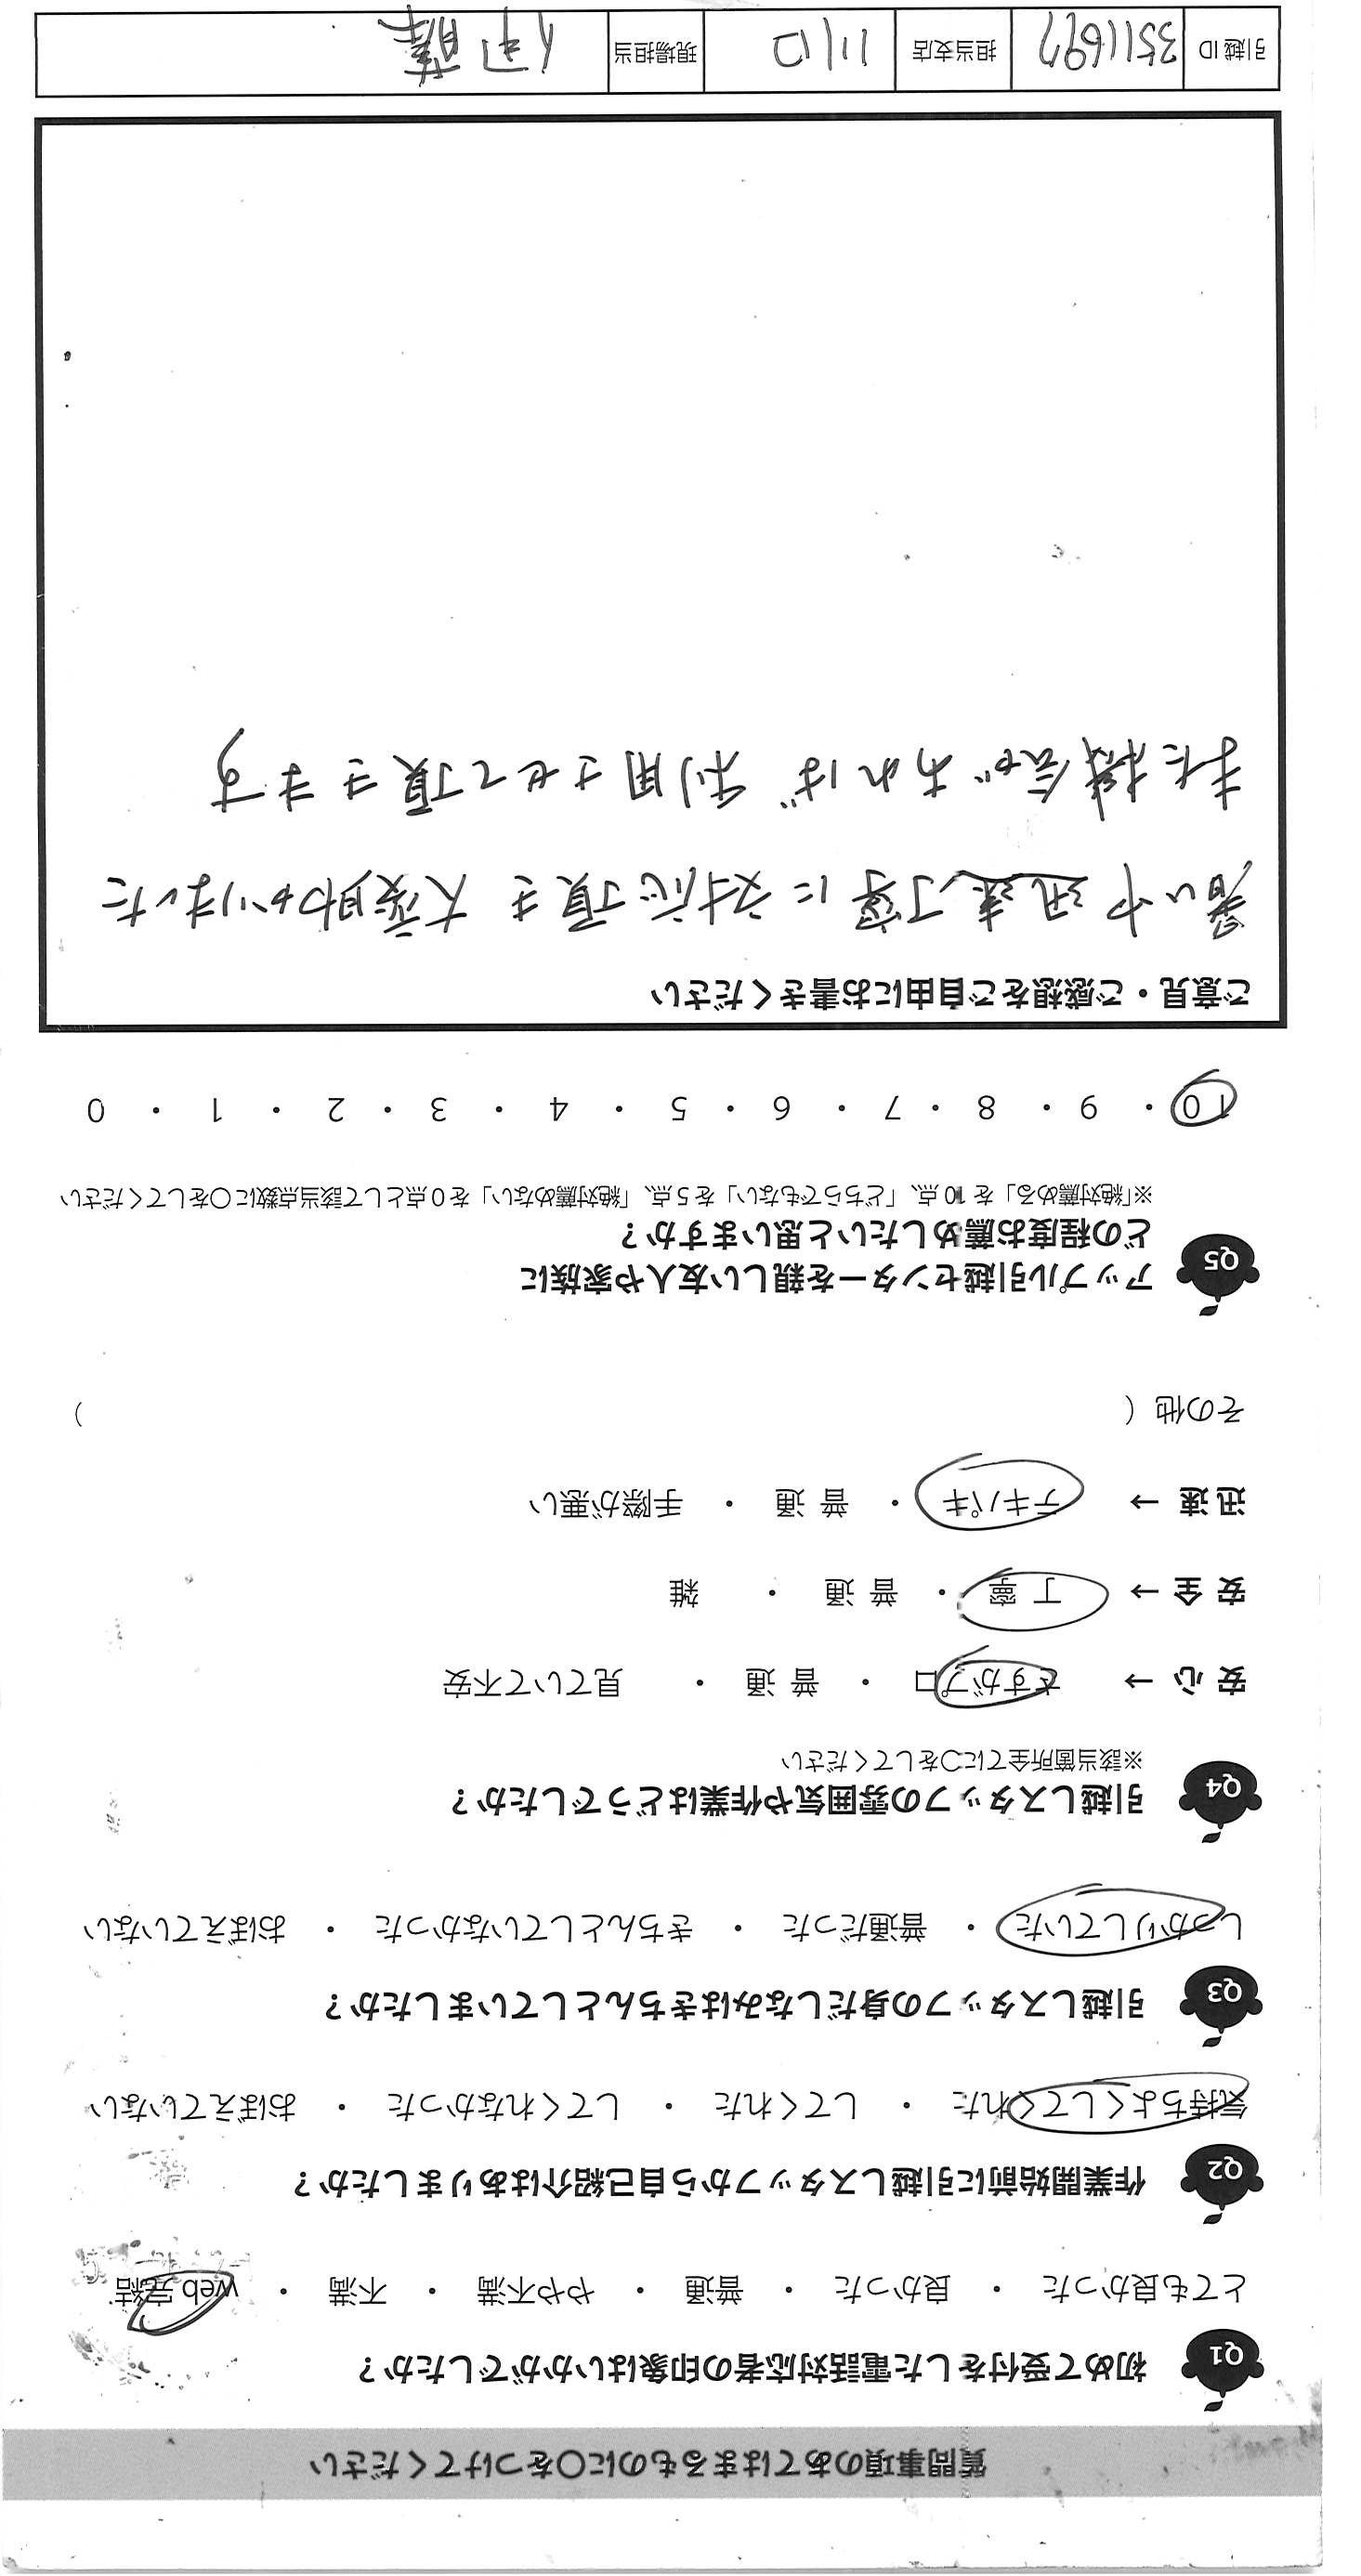 質問事項のあてはまるものに○をつけてください
Q1 初めて受付をした電話対応者の印象はいかがでしたか？
とても良かった ・ 良かった ・ 普通 ・ やや不満 ・ 不満 ・ web完結
Q2 作業開始前に引越しスタッフから自己紹介はありましたか？
気持ちよくしてくれた ・ してくれた ・ してくれなかった ・ おぼえていない
Q3 引越しスタッフの身だしなみはきちんとしていましたか？
しっかりしていた ・ 普通だった ・ きちんとしていなかった ・ おぼえていない
Q4 引越しスタッフの雰囲気や作業はどうでしたか？
※該当箇所全てに○をしてください
安心→ さすがプロ ・ 普通 ・ 見ていて不安
安全→ 丁寧 ・ 普通 ・ 雑
迅速→ テキパキ ・ 普通 ・ 手際が悪い
その他（ ）
Q5 アップル引越センターを親しい友人や家族に
どの程度お薦めしたいと思いますか？
※「絶対薦める」を10点、「どちらでもない」を5点、「絶対薦めない」を0点として該当点数に○をしてください
10 ・ 9 ・ 8 ・ 7 ・ 6 ・ 5 ・ 4 ・ 3 ・ 2 ・ 1 ・ 0
ご意見・ご感想をご自由にお書きください
暑い中 迅速丁寧に対応頂き 大変助かりました
また機会があれば 利用させて頂きます
引越ID 3511697 担当支店 川口 現場担当 伊藤